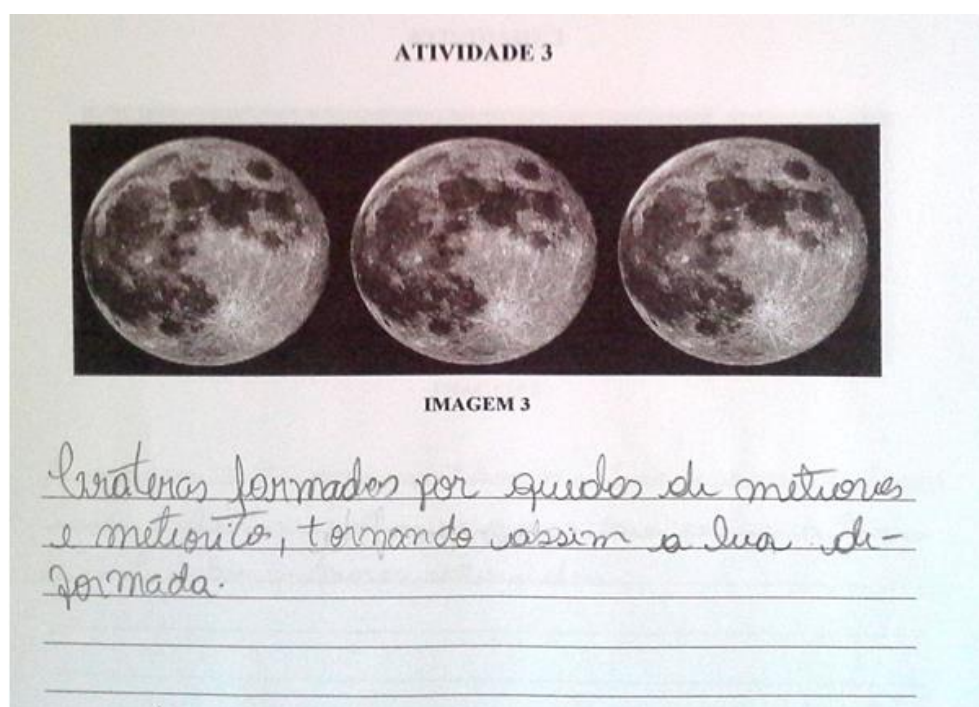 ATIVIDADE 3
IMAGEM 3
Crateras formadas por quedas de metiores
e metiorito, tornando assim a lua de-
formada.